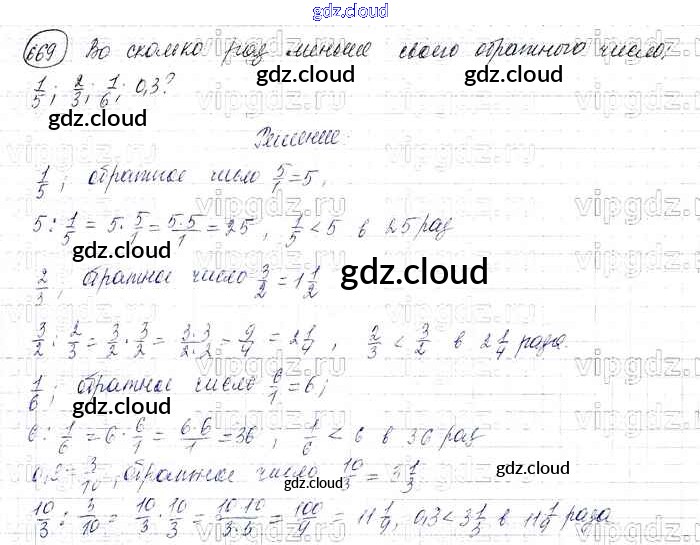 gdz.cloud
669 Во сколько раз меньше своего обратного число:
1/5; 2/3; 1/6; 0,3?
gdz.cloud
Решение
1/5; обратное число 5/1 = 5,
5 : 1/5 = 5 · 5/1 = 5·5/1 = 25, 1/5 < 5 в 25 раз
gdz.cloud
2/3; обратное число 3/2 = 1 1/2
gdz.cloud
3/2 : 2/3 = 3/2 · 3/2 = 3·3/2·2 = 9/4 = 2 1/4, 2/3 < 3/2 в 2 1/4 раза.
1/6; обратное число 6/1 = 6;
gdz.cloud
6 : 1/6 = 6 · 6/1 = 6·6/1 = 36, 1/6 < 6 в 36 раз
0,3 = 3/10, обратное число 10/3 = 3 1/3
gdz.cloud
10/3 : 3/10 = 10/3 · 10/3 = 10·10/3·3 = 100/9 = 11 1/9, 0,3 < 3 1/3 в 11 1/9 раза
gdz.cloud
vipgdz.ru